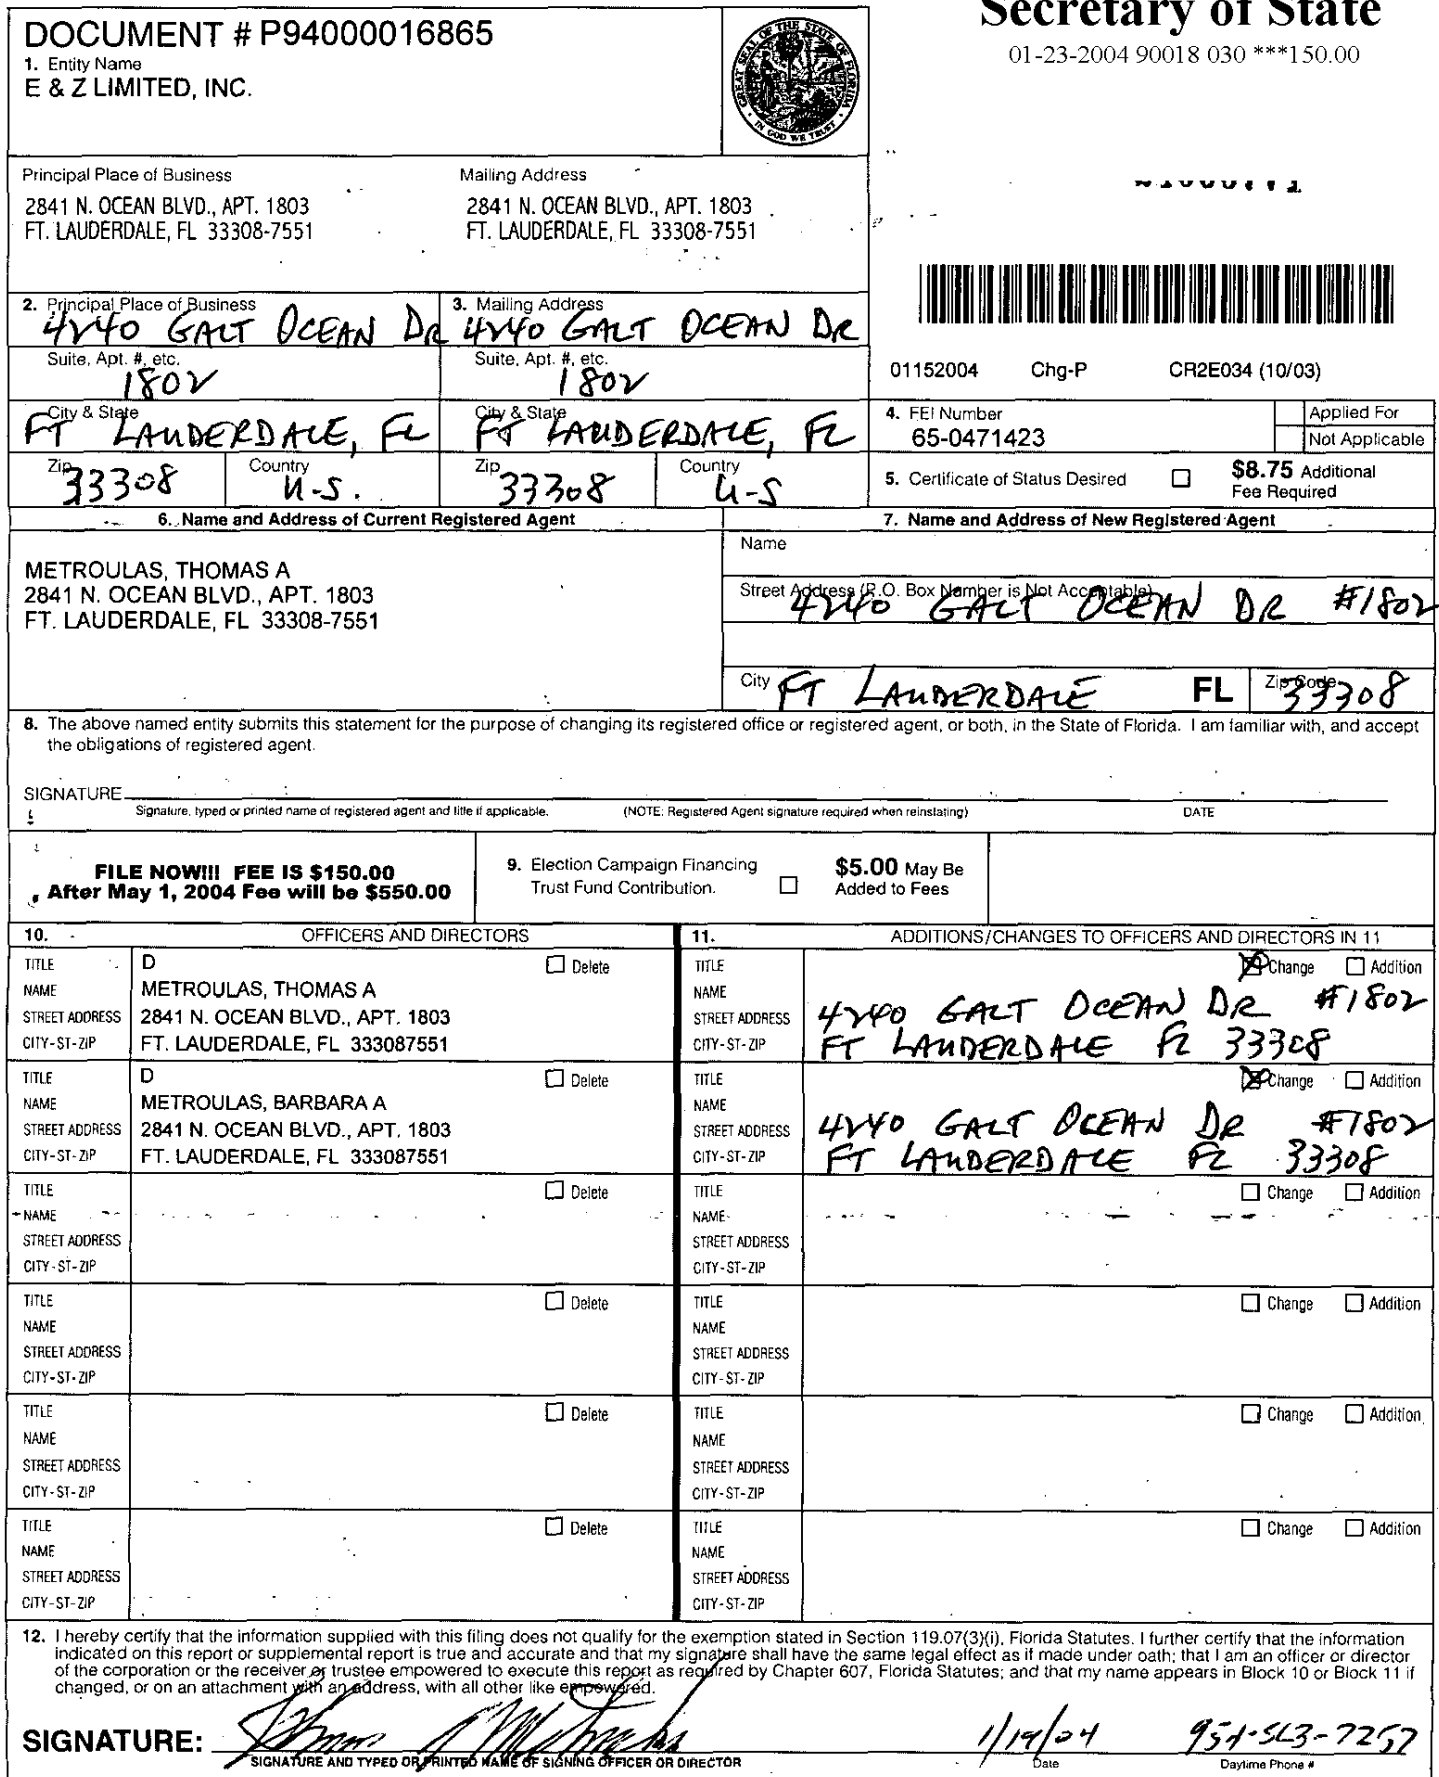 Secretary of State
01-23-2004 90018 030 ***150.00
DOCUMENT # P94000016865
1. Entity Name
E & Z LIMITED, INC.
GREAT SEAL OF THE STATE OF FLORIDA
IN GOD WE TRUST
Principal Place of Business
2841 N. OCEAN BLVD., APT. 1803
FT. LAUDERDALE, FL 33308-7551
Mailing Address
2841 N. OCEAN BLVD., APT. 1803
FT. LAUDERDALE, FL 33308-7551
2. Principal Place of Business
4240 GALT OCEAN DR
Suite, Apt. #, etc.
1802
City & State
FT LAUDERDALE, FL
Zip
33308
Country
U.S.
3. Mailing Address
4240 GALT OCEAN DR
Suite, Apt. #, etc.
1802
City & State
FT LAUDERDALE, FL
Zip
33308
Country
U-S
01152004 Chg-P CR2E034 (10/03)
4. FEI Number
65-0471423
Applied For
Not Applicable
5. Certificate of Status Desired
$8.75 Additional
Fee Required
6. Name and Address of Current Registered Agent
METROULAS, THOMAS A
2841 N. OCEAN BLVD., APT. 1803
FT. LAUDERDALE, FL 33308-7551
7. Name and Address of New Registered Agent
Name
Street Address (P.O. Box Number is Not Acceptable)
4240 GALT OCEAN DR #1802
City FT LAUDERDALE FL Zip Code 33308
8. The above named entity submits this statement for the purpose of changing its registered office or registered agent, or both, in the State of Florida. I am familiar with, and accept
the obligations of registered agent.
SIGNATURE
Signature, typed or printed name of registered agent and title if applicable. (NOTE: Registered Agent signature required when reinstating) DATE
FILE NOW!!! FEE IS $150.00
After May 1, 2004 Fee will be $550.00
9. Election Campaign Financing
Trust Fund Contribution.
$5.00 May Be
Added to Fees
10. OFFICERS AND DIRECTORS
TITLE D Delete
NAME METROULAS, THOMAS A
STREET ADDRESS 2841 N. OCEAN BLVD., APT. 1803
CITY-ST-ZIP FT. LAUDERDALE, FL 333087551
TITLE D Delete
NAME METROULAS, BARBARA A
STREET ADDRESS 2841 N. OCEAN BLVD., APT. 1803
CITY-ST-ZIP FT. LAUDERDALE, FL 333087551
TITLE Delete
NAME
STREET ADDRESS
CITY-ST-ZIP
TITLE Delete
NAME
STREET ADDRESS
CITY-ST-ZIP
TITLE Delete
NAME
STREET ADDRESS
CITY-ST-ZIP
TITLE Delete
NAME
STREET ADDRESS
CITY-ST-ZIP
11. ADDITIONS/CHANGES TO OFFICERS AND DIRECTORS IN 11
TITLE Change Addition
NAME
STREET ADDRESS 4240 GALT OCEAN DR #1802
CITY-ST-ZIP FT LAUDERDALE FL 33308
TITLE Change Addition
NAME
STREET ADDRESS 4240 GALT OCEAN DR #1802
CITY-ST-ZIP FT LAUDERDALE FL 33308
TITLE Change Addition
NAME
STREET ADDRESS
CITY-ST-ZIP
TITLE Change Addition
NAME
STREET ADDRESS
CITY-ST-ZIP
TITLE Change Addition
NAME
STREET ADDRESS
CITY-ST-ZIP
TITLE Change Addition
NAME
STREET ADDRESS
CITY-ST-ZIP
12. I hereby certify that the information supplied with this filing does not qualify for the exemption stated in Section 119.07(3)(i), Florida Statutes. I further certify that the information
indicated on this report or supplemental report is true and accurate and that my signature shall have the same legal effect as if made under oath; that I am an officer or director
of the corporation or the receiver or trustee empowered to execute this report as required by Chapter 607, Florida Statutes; and that my name appears in Block 10 or Block 11 if
changed, or on an attachment with an address, with all other like empowered.
SIGNATURE: 1/19/04 954-563-7257
SIGNATURE AND TYPED OR PRINTED NAME OF SIGNING OFFICER OR DIRECTOR Date Daytime Phone #